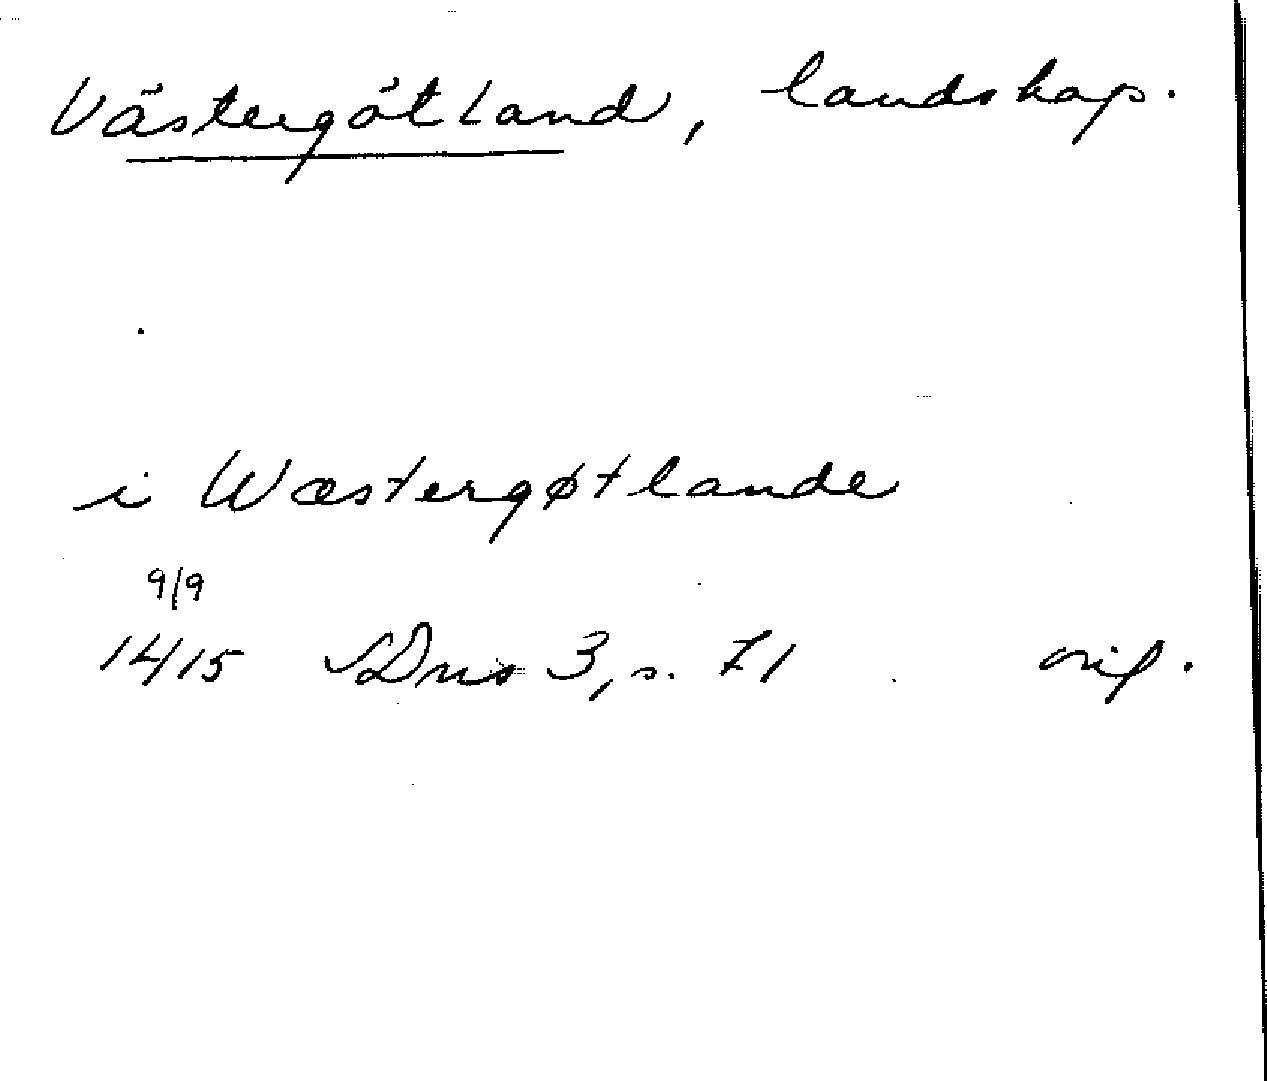 Västergötland, landskap.
i Wæstergøtlande
9/9
1415 SDns 3, s. 71 orig.